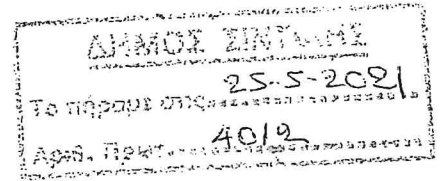 ΔΗΜΟΣ ΣΙΝΤΙΚΗΣ
Το πήραμε στις 25-5-2021
Αριθ. Πρωτ. 4012